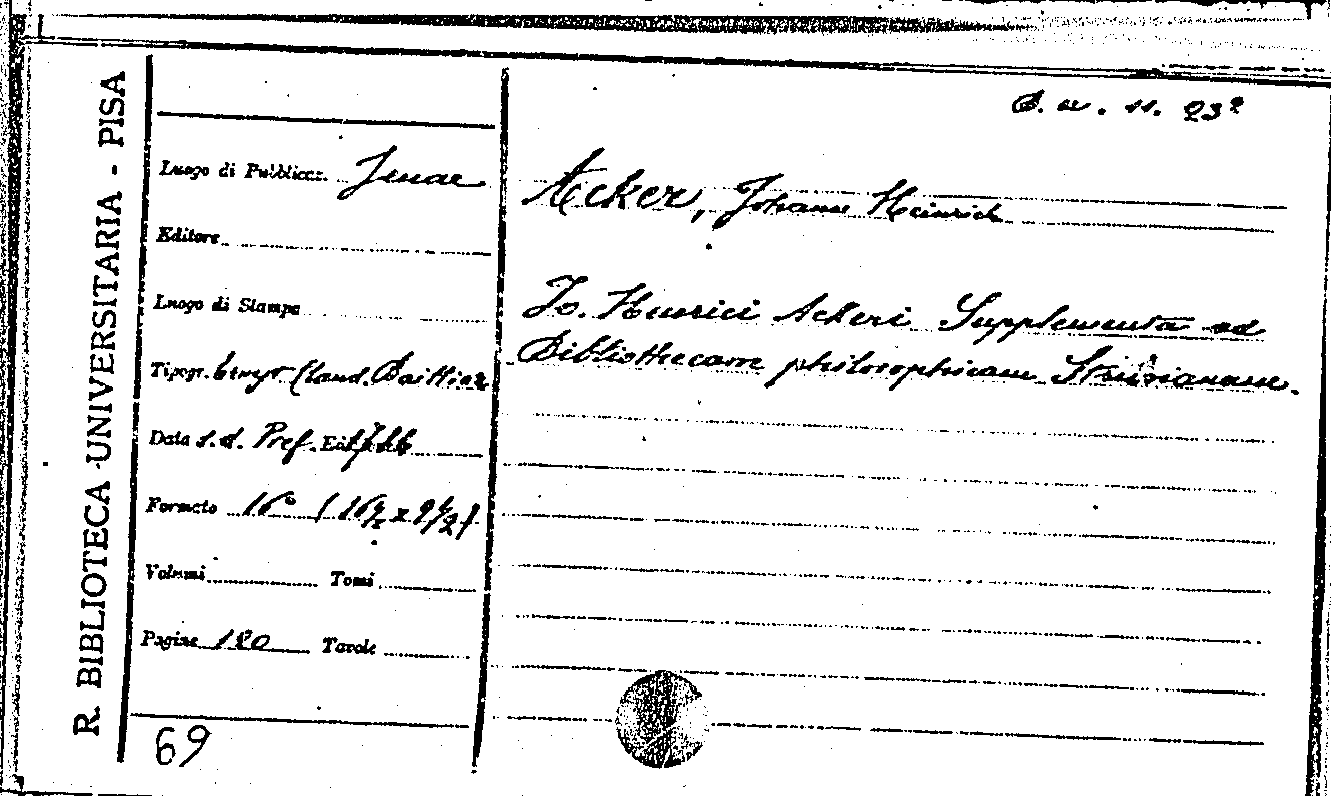 R. BIBLIOTECA UNIVERSITARIA - PISA
B. a. 11. 23²
Luogo di Pubblicaz. Jenae
Editore
Luogo di Stampa
Tipogr.
Data s.d. Pref.
Formato 16° (16½ x 9½)
Volumi Tomi
Pagine 120 Tavole
69
Acker, Johann Heinrich
Jo. Henrici Ackeri Supplementa ad
Bibliothecam philosophicam Struvianam.